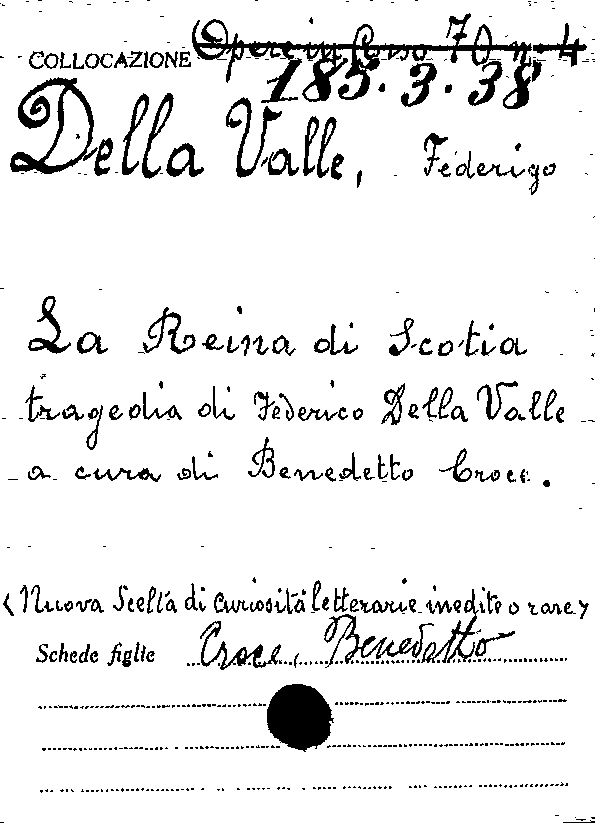 COLLOCAZIONE Opere in Corso 70 n. 4
185.3.38
Della Valle, Federigo
La Reina di Scotia
tragedia di Federico Della Valle
a cura di Benedetto Croce.
<Nuova Scelta di curiosità letterarie inedite o rare>
Schede figlie Croce, Benedetto